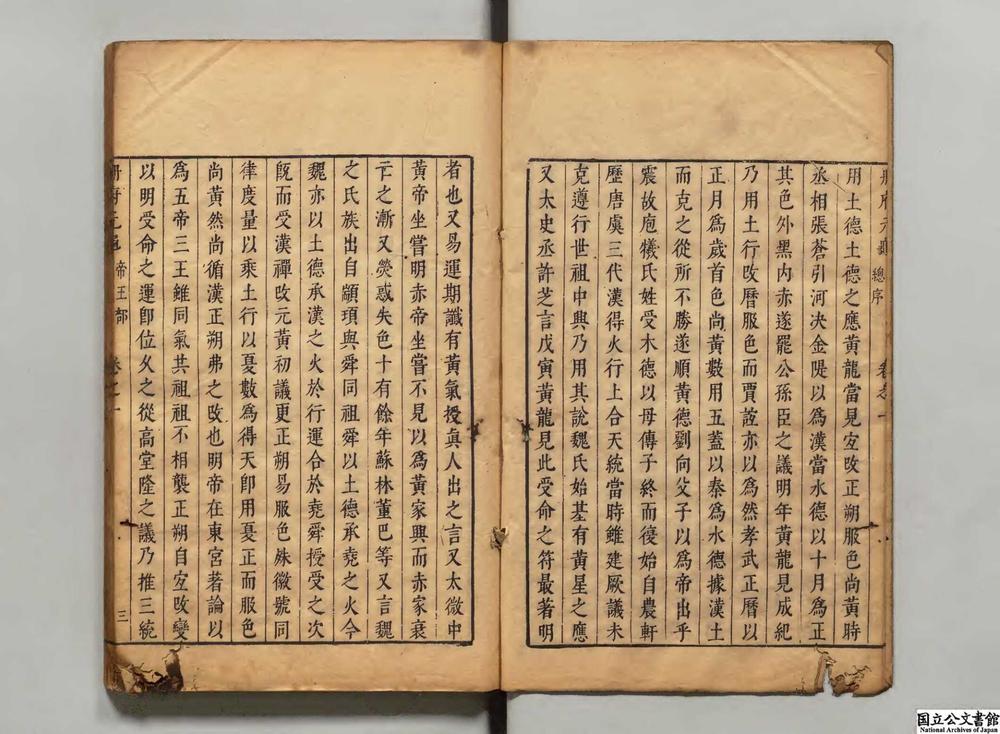 冊府元龜 總序 卷之一
用土德土德之應黃龍當見宜改正朔服色尚黃時
丞相張蒼引河決金隄以為漢當水德以十月為正
其色外黑內赤遂罷公孫臣之議明年黃龍見成紀
乃用土行改曆服色而賈誼亦以為然孝武正曆以
正月為歲首色尚黃數用五蓋以秦為水德據漢土
而克之從所不勝遂順黃德劉向父子以為帝出乎
震故庖犧氏姓受木德以母傳子終而復始自農軒
歷唐虞三代漢得火行上合天統當時雖建厥議未
克遵行世祖中興乃用其說魏氏始基有黃星之應
又太史丞許芝言戊寅黃龍見此受命之符最著明
者也又易運期讖有黃氣授真人出之言又太微中
黃帝坐嘗明赤帝坐嘗不見以為黃家興而赤家衰
亡之漸又熒惑失色十有餘年蘇林董巴等又言魏
之氏族出自顓頊與舜同祖舜以土德承堯之火今
魏亦以土德承漢之火於行運合於堯舜授受之次
既而受漢禪改元黃初議更正朔易服色殊徽號同
律度量以乘土行以夏數為得天即用夏正而服色
尚黃然尚循漢正朔弗之改也明帝在東宮著論以
為五帝三王雖同氣共祖祖不相襲正朔自宜改變
以明受命之運即位久之從高堂隆之議乃推三統
冊府元龜 帝王部 卷之一 三
国立公文書館
National Archives of Japan